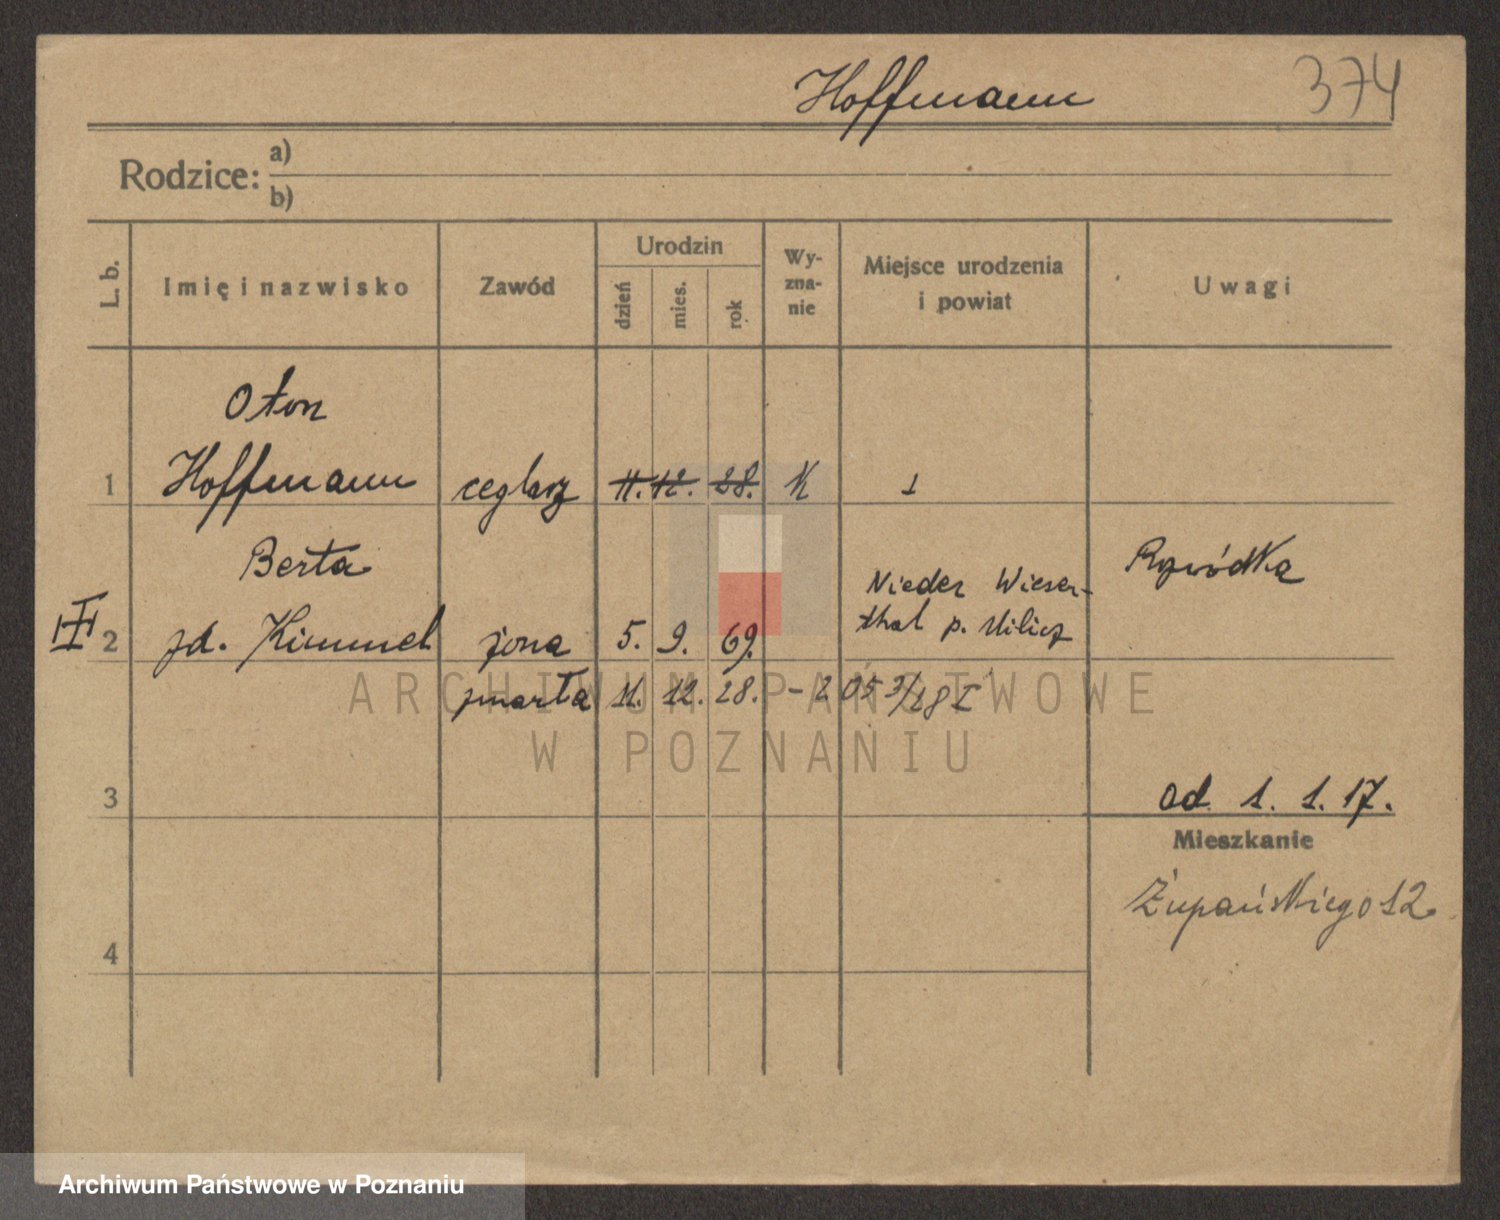 Hoffmann 374
Rodzice: a)
b)
L. b. Imię i nazwisko Zawód Urodzin dzień mies. rok Wy-zna-nie Miejsce urodzenia i powiat Uwagi
Oton
1 Hoffmann ceglarz 11. 12. 28. K
Berta Rozwódka
Nieder Wiesen-
2 zd. Kimmel żona 5. 9. 69. thal p. Milicz
zmarła 11. 12. 28. - 2 05 3/28 I
3 od 1. 1. 17.
Mieszkanie
Żupańskiego 12
4
ARCHIWUM PAŃSTWOWE
W POZNANIU
Archiwum Państwowe w Poznaniu